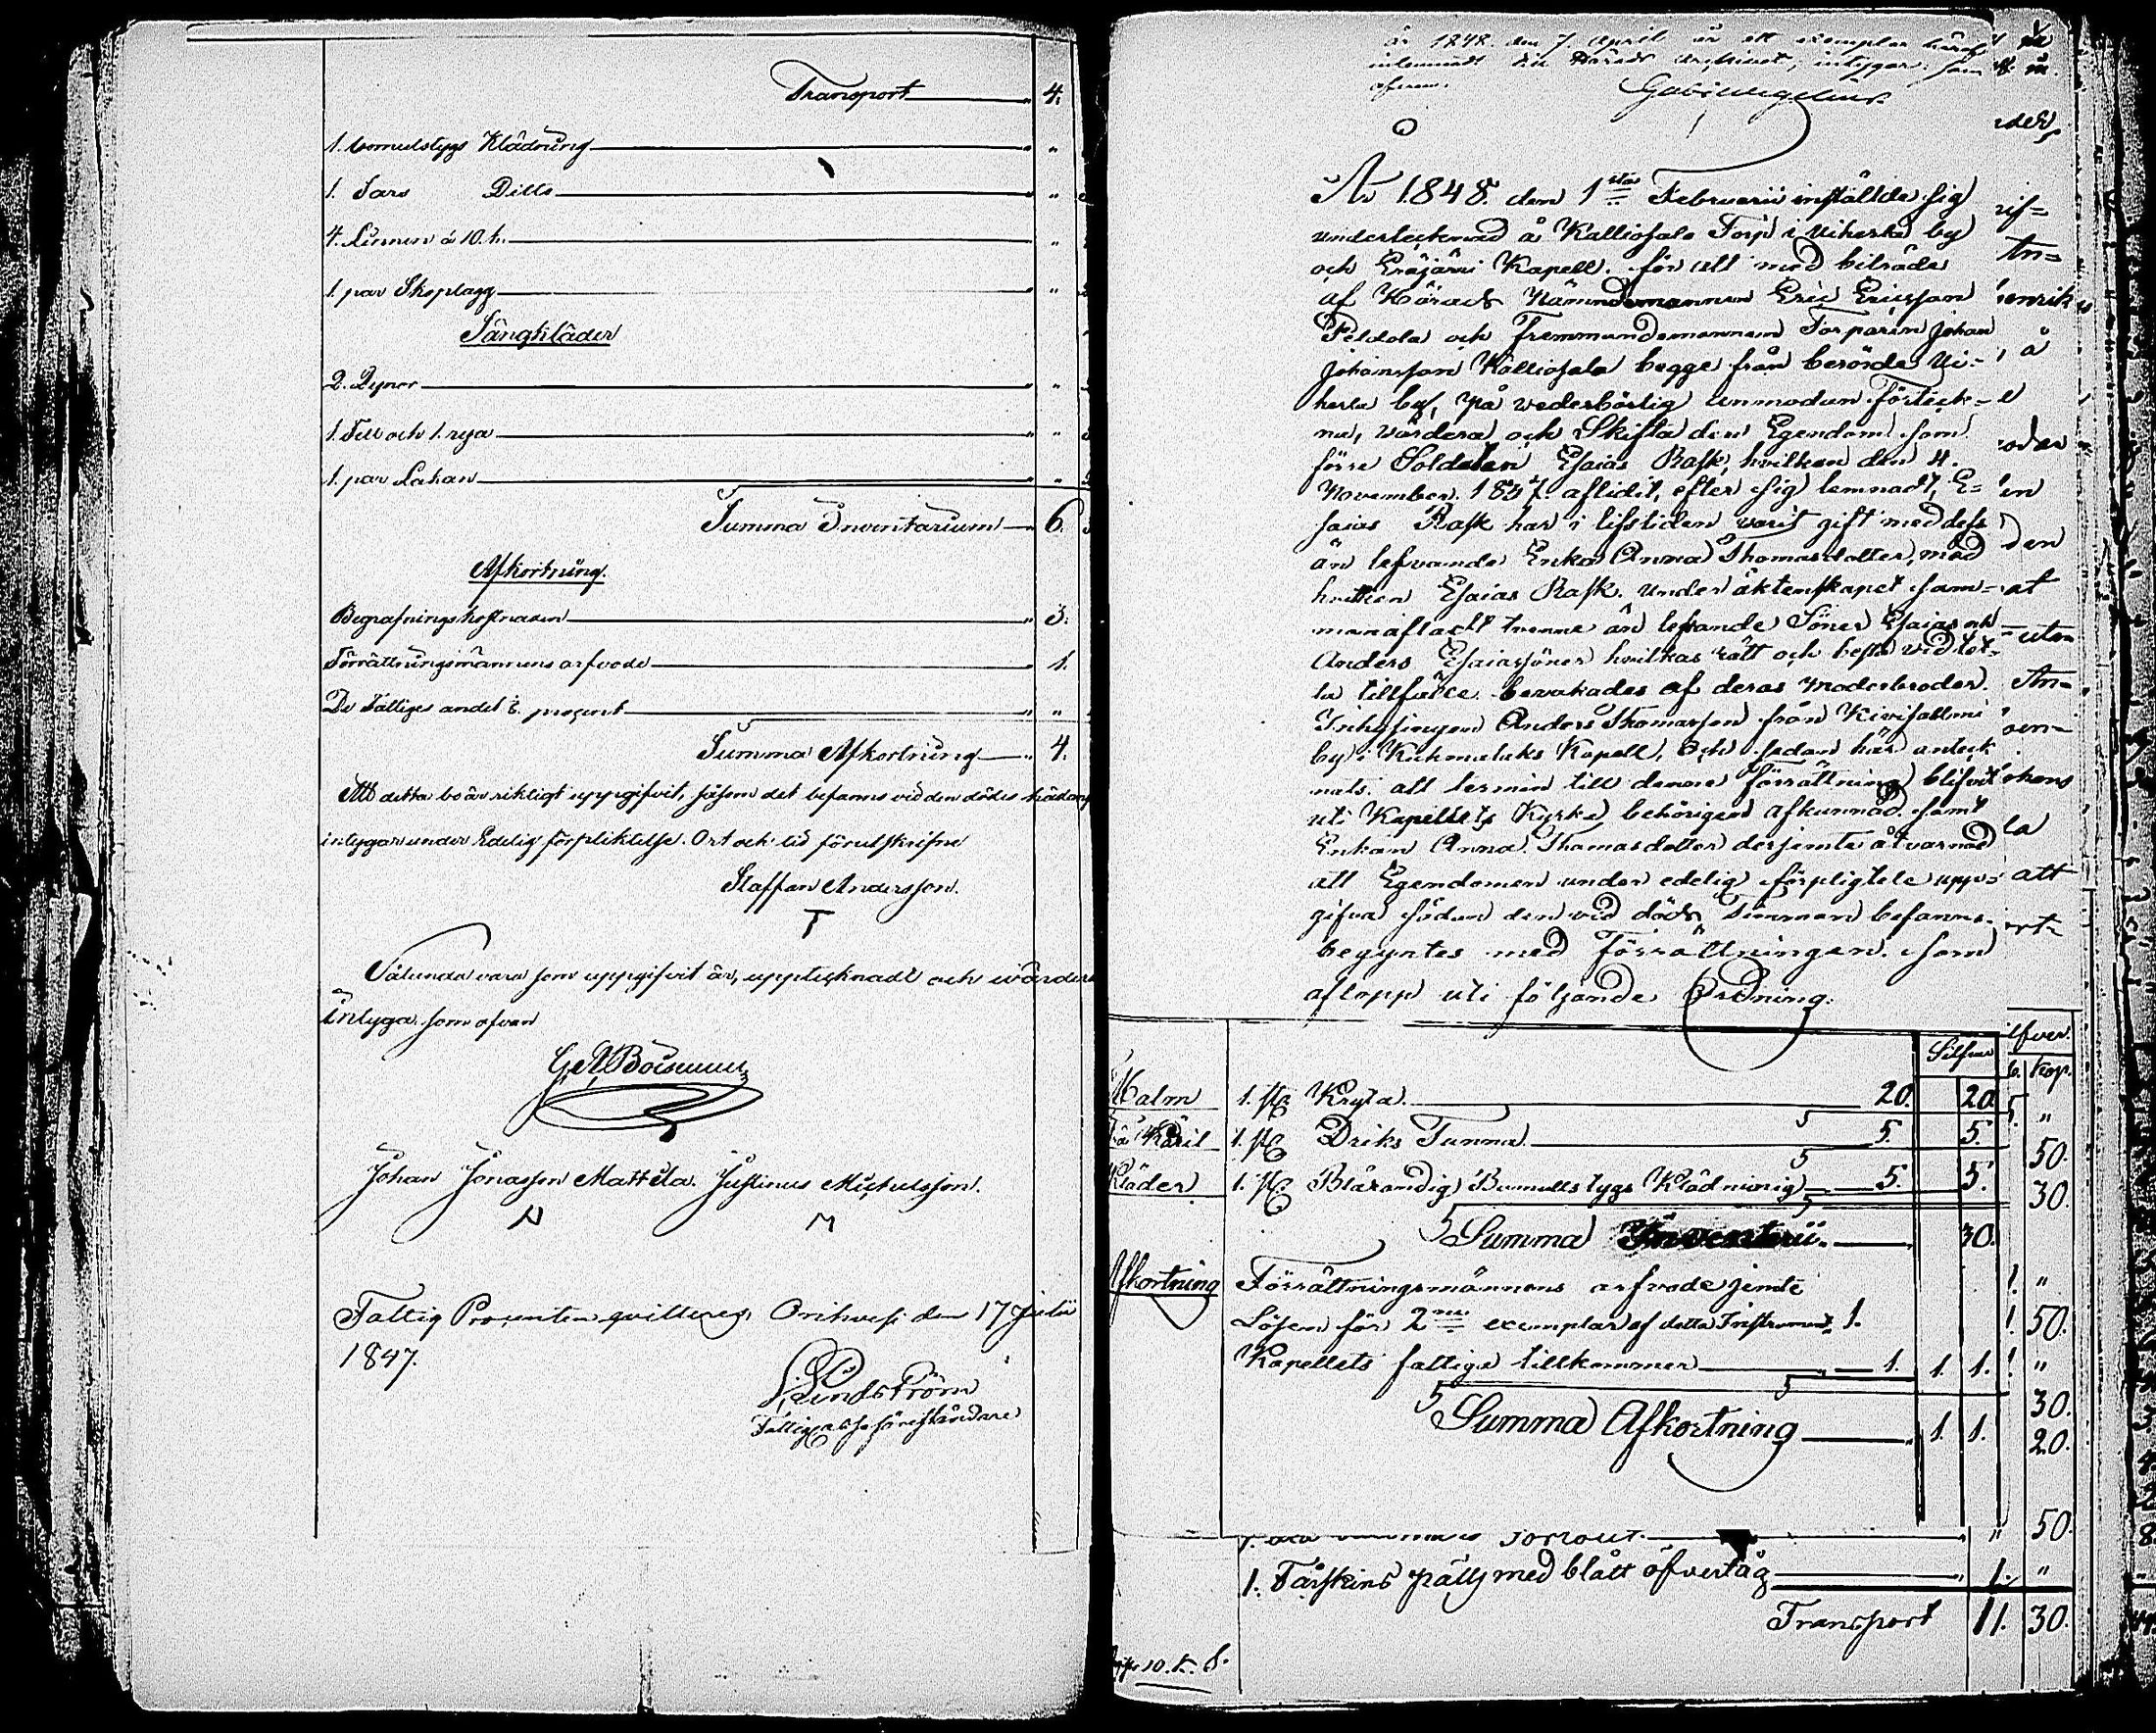 Transport 4.
1. bomulstygs Klädning "
1. Sars Ditto "
4. Linnen à 10. k. "
1. par Skoplagg "
Sängkläder
2. Dynor "
1. Fell och 1. rya "
1. par Lakan "
Summa Inventarium 6.
Afkortning.
Begrafningskostnaden 3.
Förrättningsmännens arfvode 1.
De Fattiges andel procent "
Summa Afkortning 4.
Att detta bo är riktigt uppgifvit, såsom det befanns vid den dödes
intygar under Edelig förpliktelse. Ort och tid förutskrifne
Staffan Andersson.
T
Sålunda vara som uppgifvit är, upptecknadt och
intyga. som ofvan
Johan Jonasson Mattila. Justinus Michelsson.
Fattig Procenten qvitteras, Orihvesi den 17 Julii
1847.
Lindström
Fattig föreståndare
år 1848. den 7 April är ett exemplar häraf
inlemnadt till Härads Archivet, intygar; som
ofvan.
År 1848. den 1sta Februarii inställde sig
undertecknad å Kalliosalo Torp i Uiherla by
och Eräjärvi Kapell. för att med biträde
af Härads Nämndemannen Eric Ericsson
Peldola och Fremmandemannen Torparen Johan
Johansson Kalliosalo begge från berörde Ui-
herla by, på wederbörlig anmodan Förteck-
na, wärdera och Skifta den Egendom som
förre Soldaten Esaias Rask, hvilken den 4.
November. 1837 aflidit, efter sig lemnadt, E-
saias Rask har i lifstiden varit gift med dess
än lefvande Enka Anna Thomasdotter, med
hvilken Esaias Rask. under äktenskapet sam-
manaflat tvenne än lefvande Söner Esaias och
Anders Esaiassöner hvilkas rätt och bästa vid det-
ta tillfälle bevakades af deras moderbroder.
Inhysingen Anders Thomasson från
by i Kuhmalaks Kapell, och sedan här anteck
nats. att termin till denna Förrättning blifvit
uti Kapellets Kyrka behörigen afkunnad. samt
Enkan Anna. Thomasdotter derjemte åtvarnad
att Egendomen under edelig förpligtele upp-
gifva sådan den vid döds timman befanns.
begyntes med Förrättningen. som
aflopp uti följande Ordning.
Silfver
Malm 1. st. Gryta. 20. 20
Träkäril 1. st. Driks Tunna. 5. 5.
Kläder 1. st. Blårandig Bomullstygs Klädning 5. 5.
Summa Inventarii. 30.
Afkortning Förrättningsmännens arfvode jemte
Lösen för 2ne exemplar af detta Instrument 1.
Kapellets fattiga tillkommer 1. 1. 1.
Summa Afkortning 1. 1.
1. Fårskins päls med blått öfvertåg 1. "
Transport 11. 30.